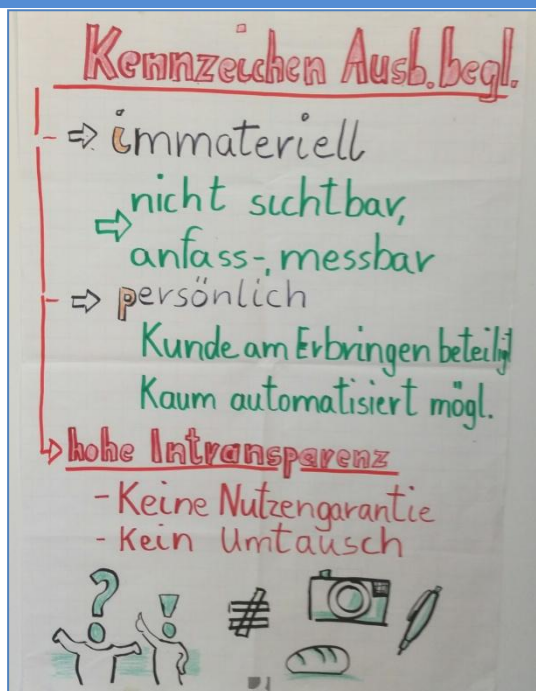 Kennzeichen Ausb.begl.
- ⇒ immateriell
⇒ nicht sichtbar,
anfass-, messbar
- ⇒ persönlich
Kunde am Erbringen beteiligt
Kaum automatisiert mögl.
hohe Intransparenz
- Keine Nutzengarantie
- Kein Umtausch
? ! ≠